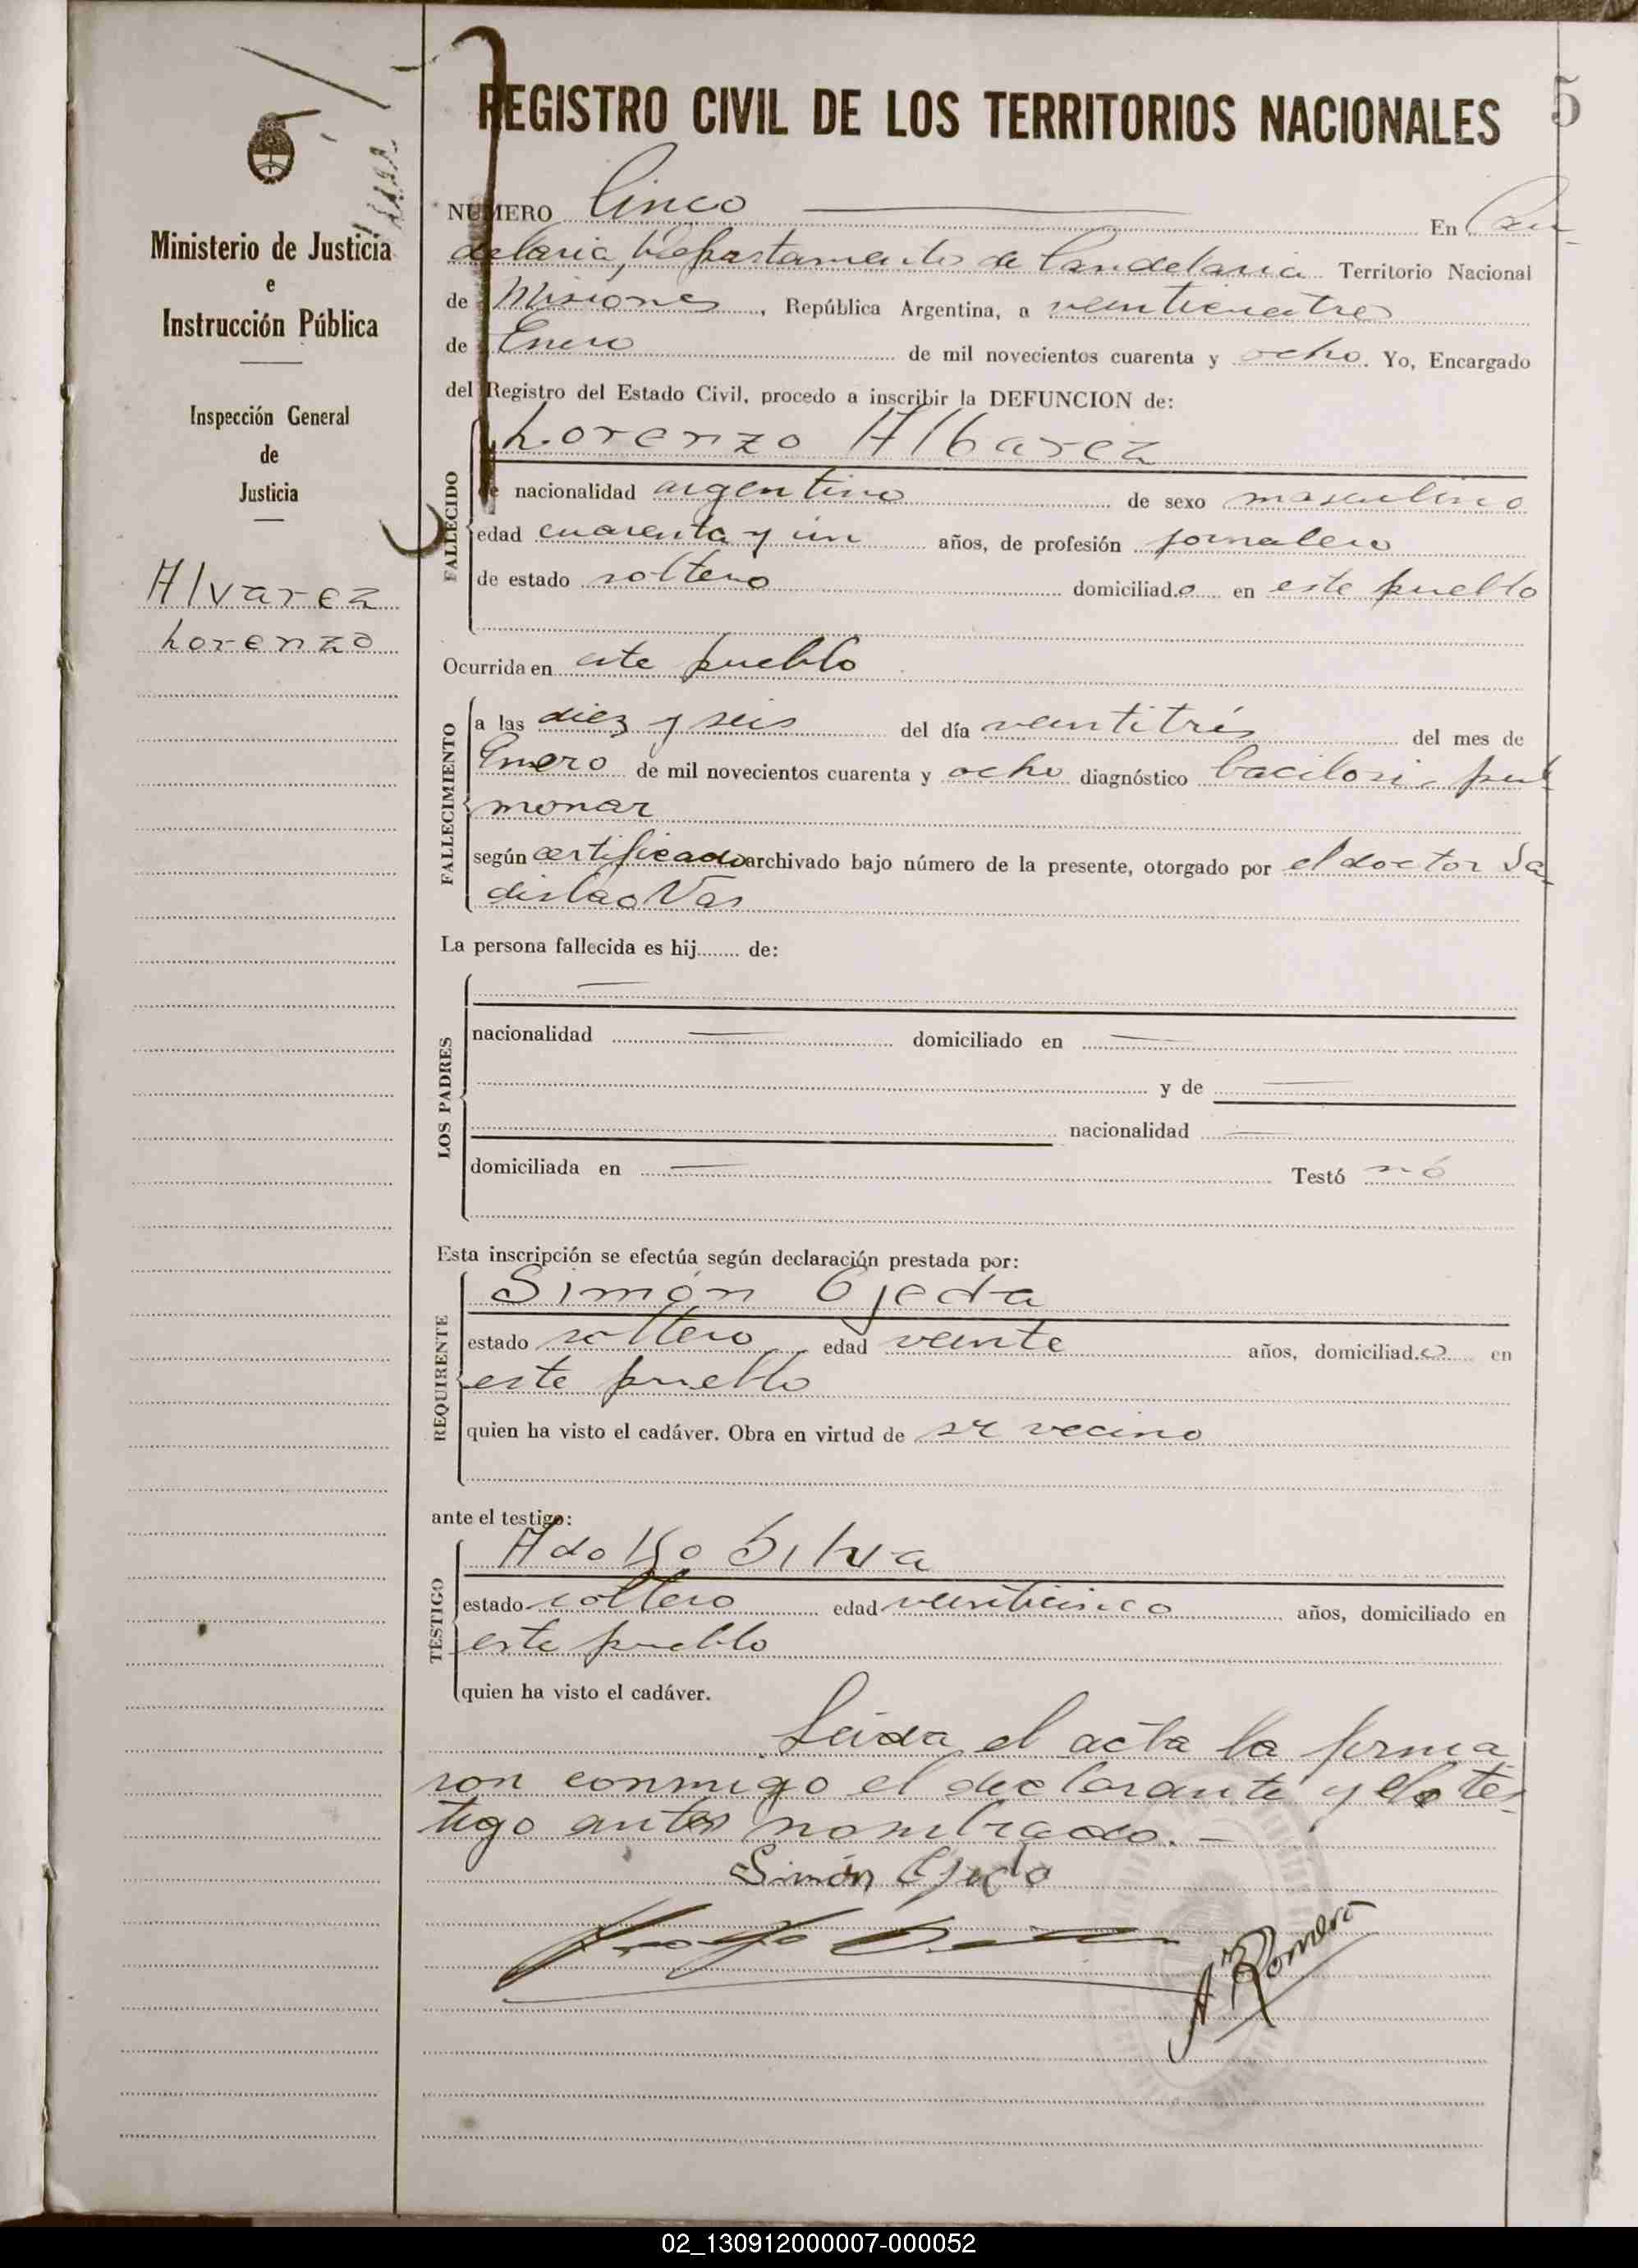 5
REGISTRO CIVIL DE LOS TERRITORIOS NACIONALES
Ministerio de Justicia
e
Instrucción Pública
Inspección General
de
Justicia
Alvarez
Lorenzo
NUMERO Cinco En Can-
delaria, Departamento de Candelaria Territorio Nacional
de Misiones, República Argentina, a veinticuatro
de Enero de mil novecientos cuarenta y ocho. Yo, Encargado
del Registro del Estado Civil, procedo a inscribir la DEFUNCION de:
FALLECIDO
Lorenzo Albarez
de nacionalidad argentino de sexo masculino
edad cuarenta y un años, de profesión jornalero
de estado soltero domiciliado en este pueblo
Ocurrida en este pueblo
FALLECIMIENTO
a las diez y seis del día veintitrés del mes de
Enero de mil novecientos cuarenta y ocho diagnóstico bacilosis pul
monar
según certificado archivado bajo número de la presente, otorgado por el doctor La-
dislao Vas
La persona fallecida es hij........ de:
LOS PADRES
nacionalidad domiciliado en
y de
nacionalidad
domiciliada en Testó nó
Esta inscripción se efectúa según declaración prestada por:
REQUIRENTE
Simón Ojeda
estado soltero edad veinte años, domiciliado en
este pueblo
quien ha visto el cadáver. Obra en virtud de ser vecino
ante el testigo:
TESTIGO
Adolfo Silva
estado soltero edad veinticinco años, domiciliado en
este pueblo
quien ha visto el cadáver.
Leida el acta la firma
ron conmigo el declarante y el tes-
tigo antes nombrado.-
Simón Ojeda
A. Romero
02_130912000007-000052